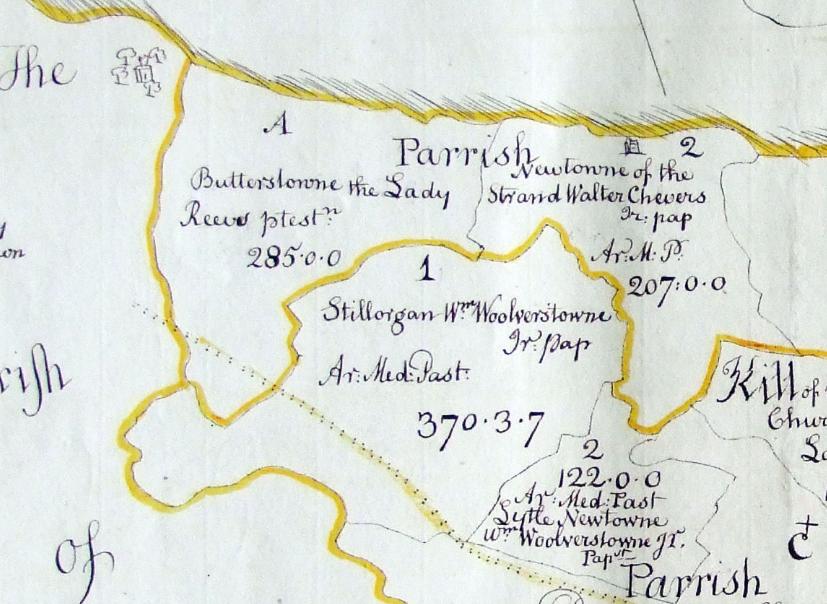 The
A
Butterstowne the Lady
Reeves ptest.n
285·0·0
Parrish
2
Newtowne of the
Strand Walter Chevers
Ir: pap
Ar: M: P.
207:0·0
1
Stillorgan Wm Woolverstowne
Ir: pap
Ar: Med: Past:
370·3·7
2
122·0·0
Ar: Med: Past
Lytle Newtowne
Wm Woolverstowne Ir.
Papst
Parrish
Kill of
rish
of
on